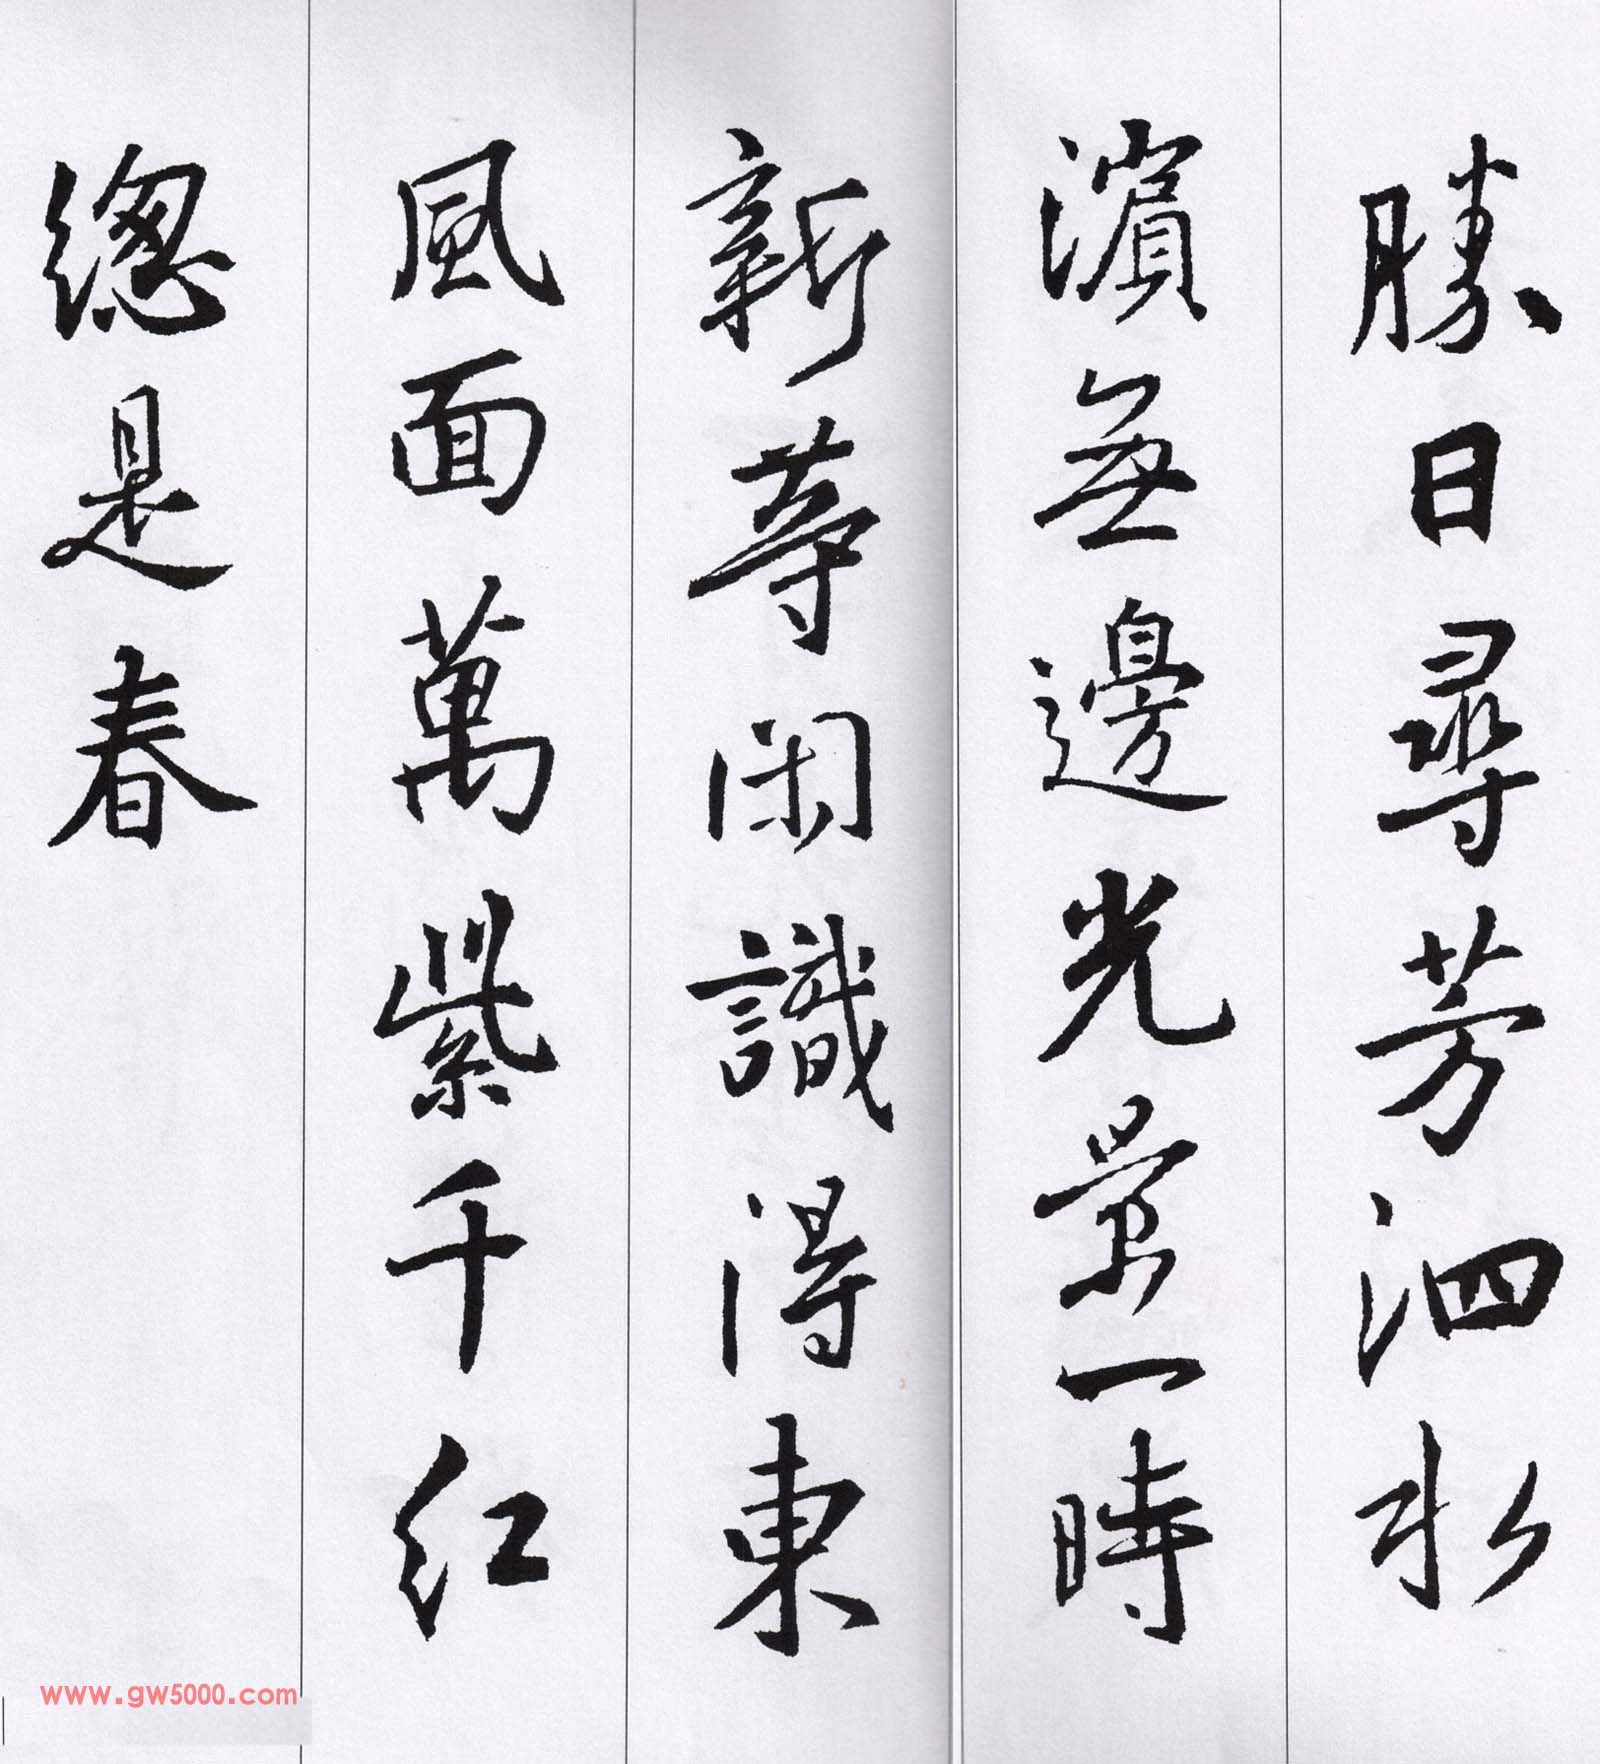 勝日尋芳泗水
濵無邊光景一時
新等閑識得東
風面萬紫千红
總是春
www.gw5000.com